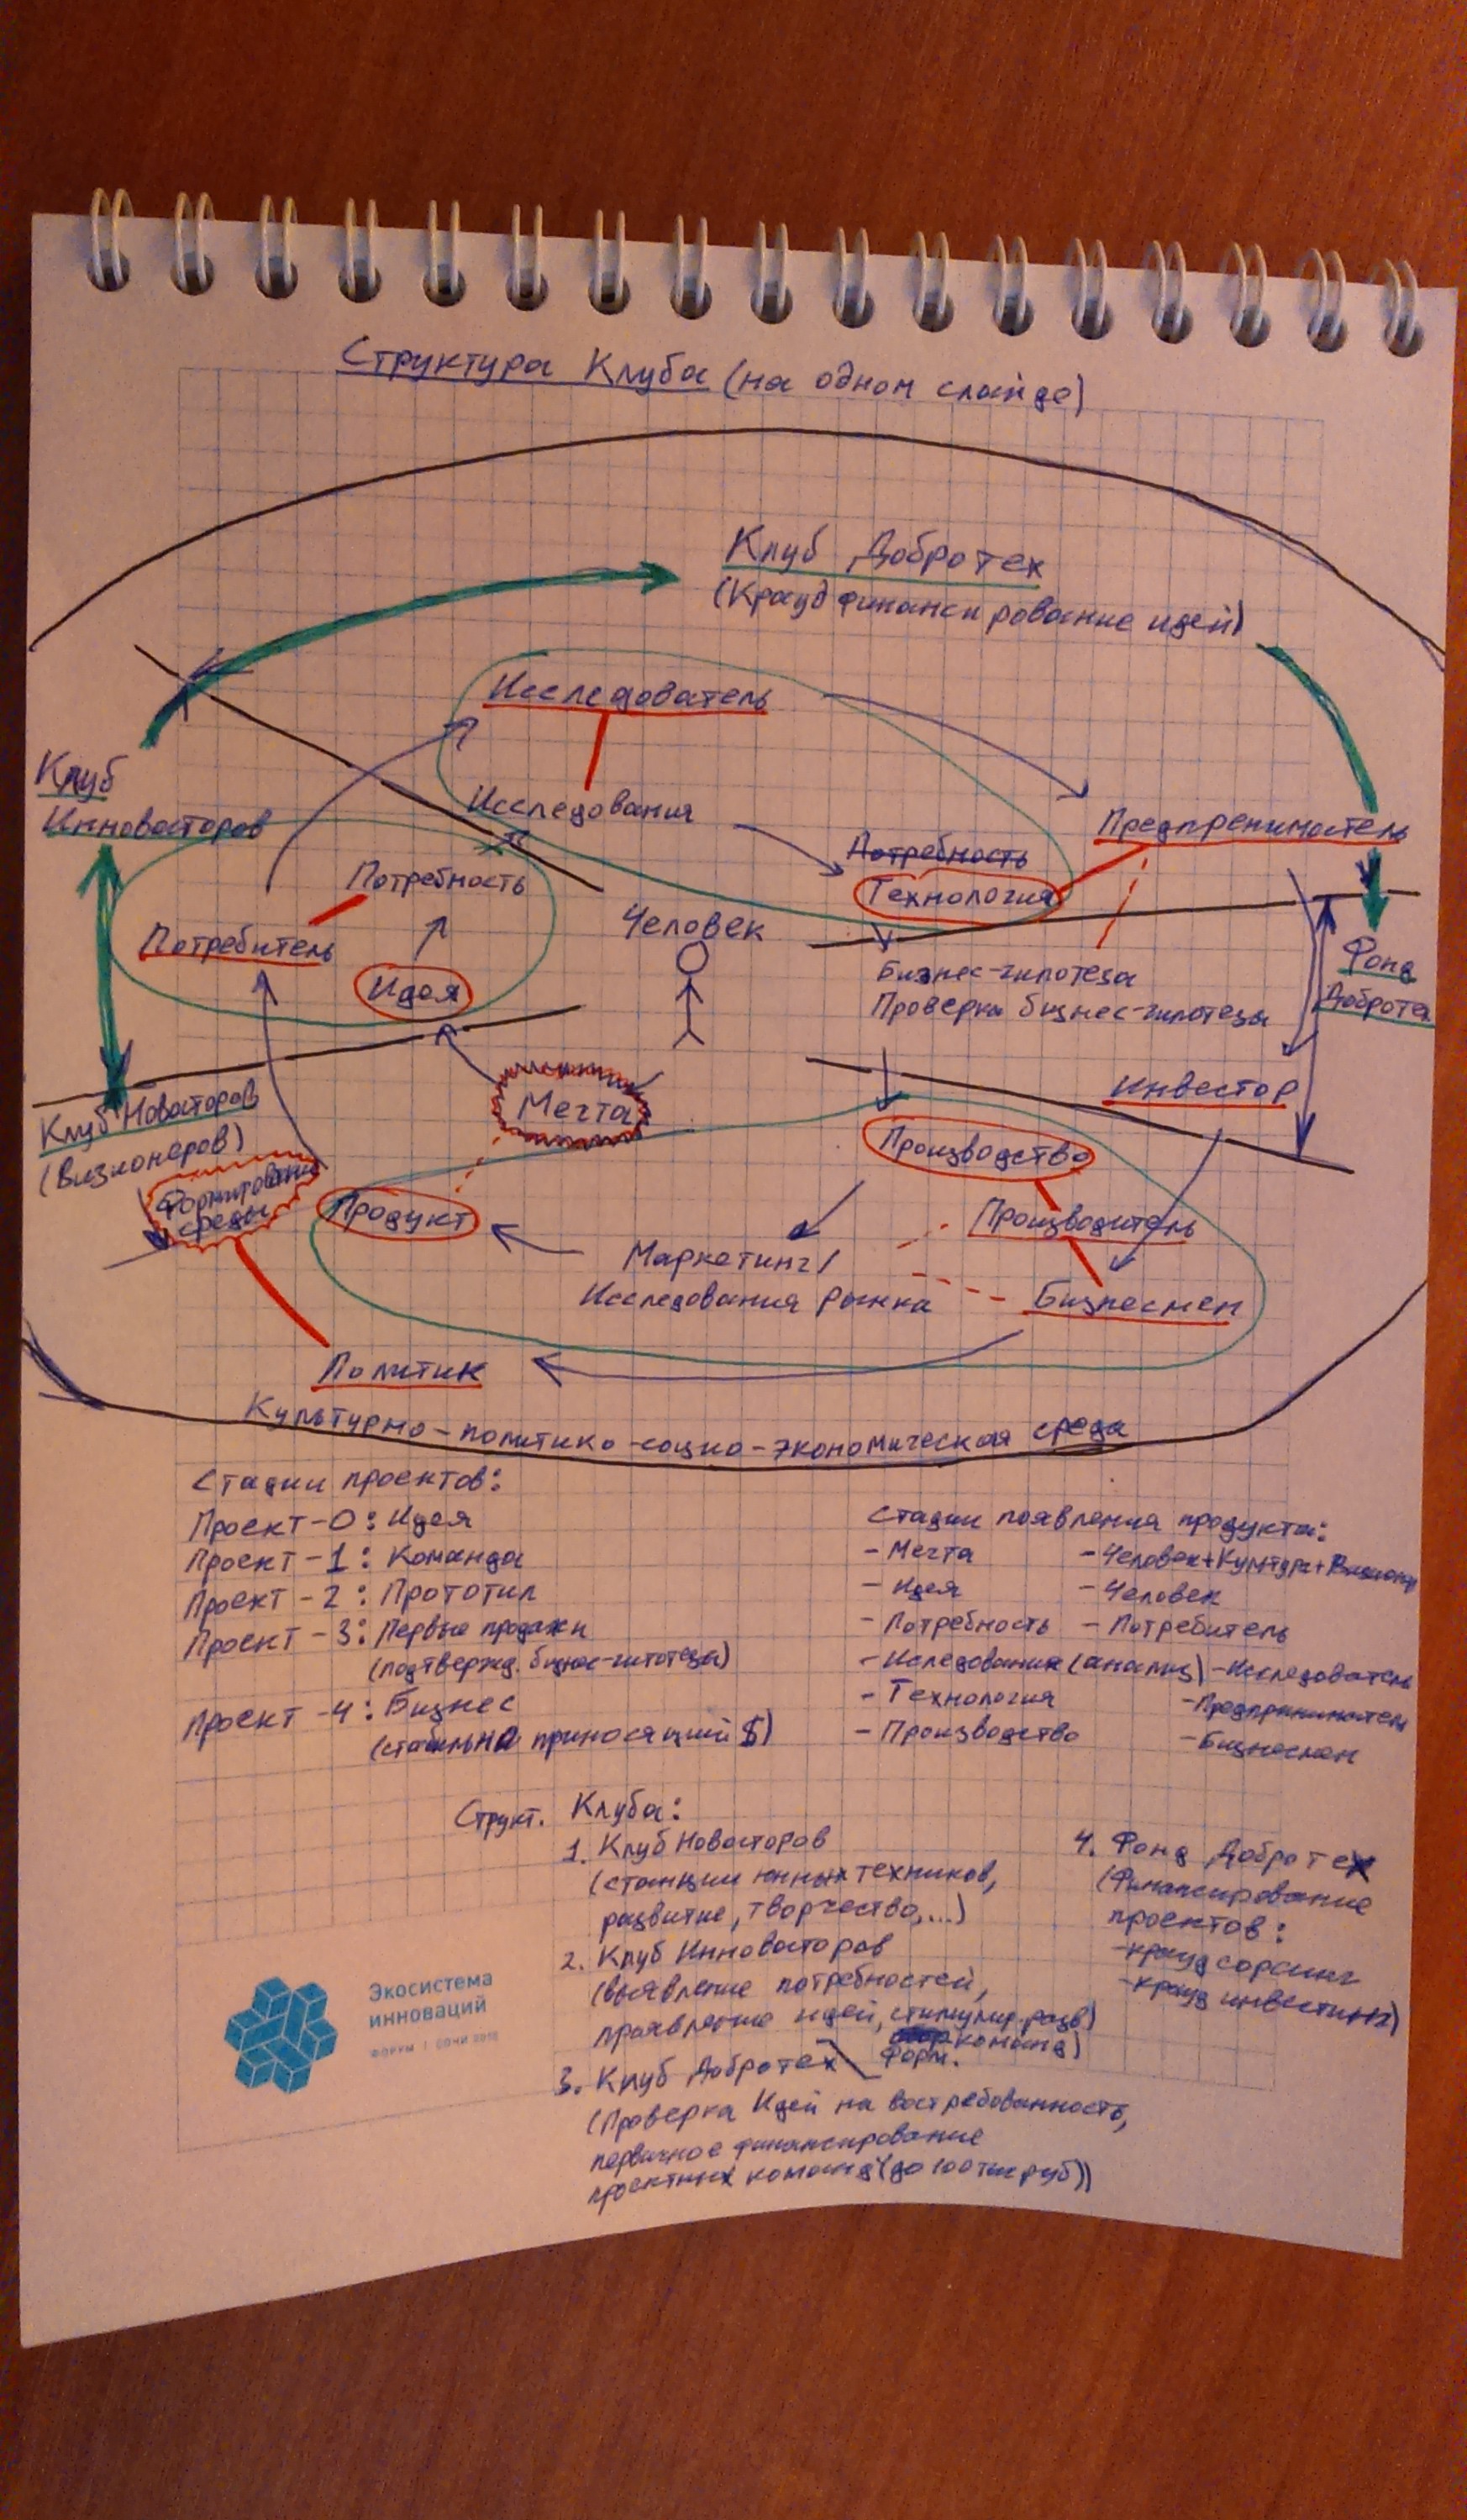 Структура Клуба (на одном слайде)
Клуб Добротех
(Крауд финансирование идей)
Исследователь
Клуб
Инноваторов
Исследования
Предприниматель
Потребность
Потребность
Технология
Человек
Потребитель
Идея
Бизнес-гипотеза
Проверка бизнес-гипотезы
Фонд
Добротех
Мечта
Инвестор
Клуб Новаторов
(Визионеров)
Формирование
среды
Производство
Продукт
Производитель
Маркетинг/
Исследования рынка
Бизнесмен
Политик
Культурно-политико-социо-экономическая среда
Стадии проектов:
Проект-0: Идея
Проект-1: Команда
Проект-2: Прототип
Проект-3: Первые продажи
(подтвержд. бизнес-гипотезы)
Проект-4: Бизнес
(стабильно приносящий $)
Стадии появления продукта:
- Мечта - Человек+Культура+Визионер
- Идея - Человек
- Потребность - Потребитель
- Иследования (анализ) - Исследователь
- Технология - Предприниматель
- Производство - Бизнесмен
Структ. Клуба:
1. Клуб Новаторов
(станции юных техников,
развитие, творчество,...)
2. Клуб Инноваторов
(выявление потребностей,
проявление идей, стимулир. разв)
форм. команд)
3. Клуб Добротех
(Проверка Идей на востребованность,
первичное финансирование
проектных команд (до 100 тыс руб))
4. Фонд Добротех
(Финансирование
проектов:
- крауд сорсинг
- крауд инвестинг)
Экосистема
инноваций
ФОРУМ | СОЧИ 2016